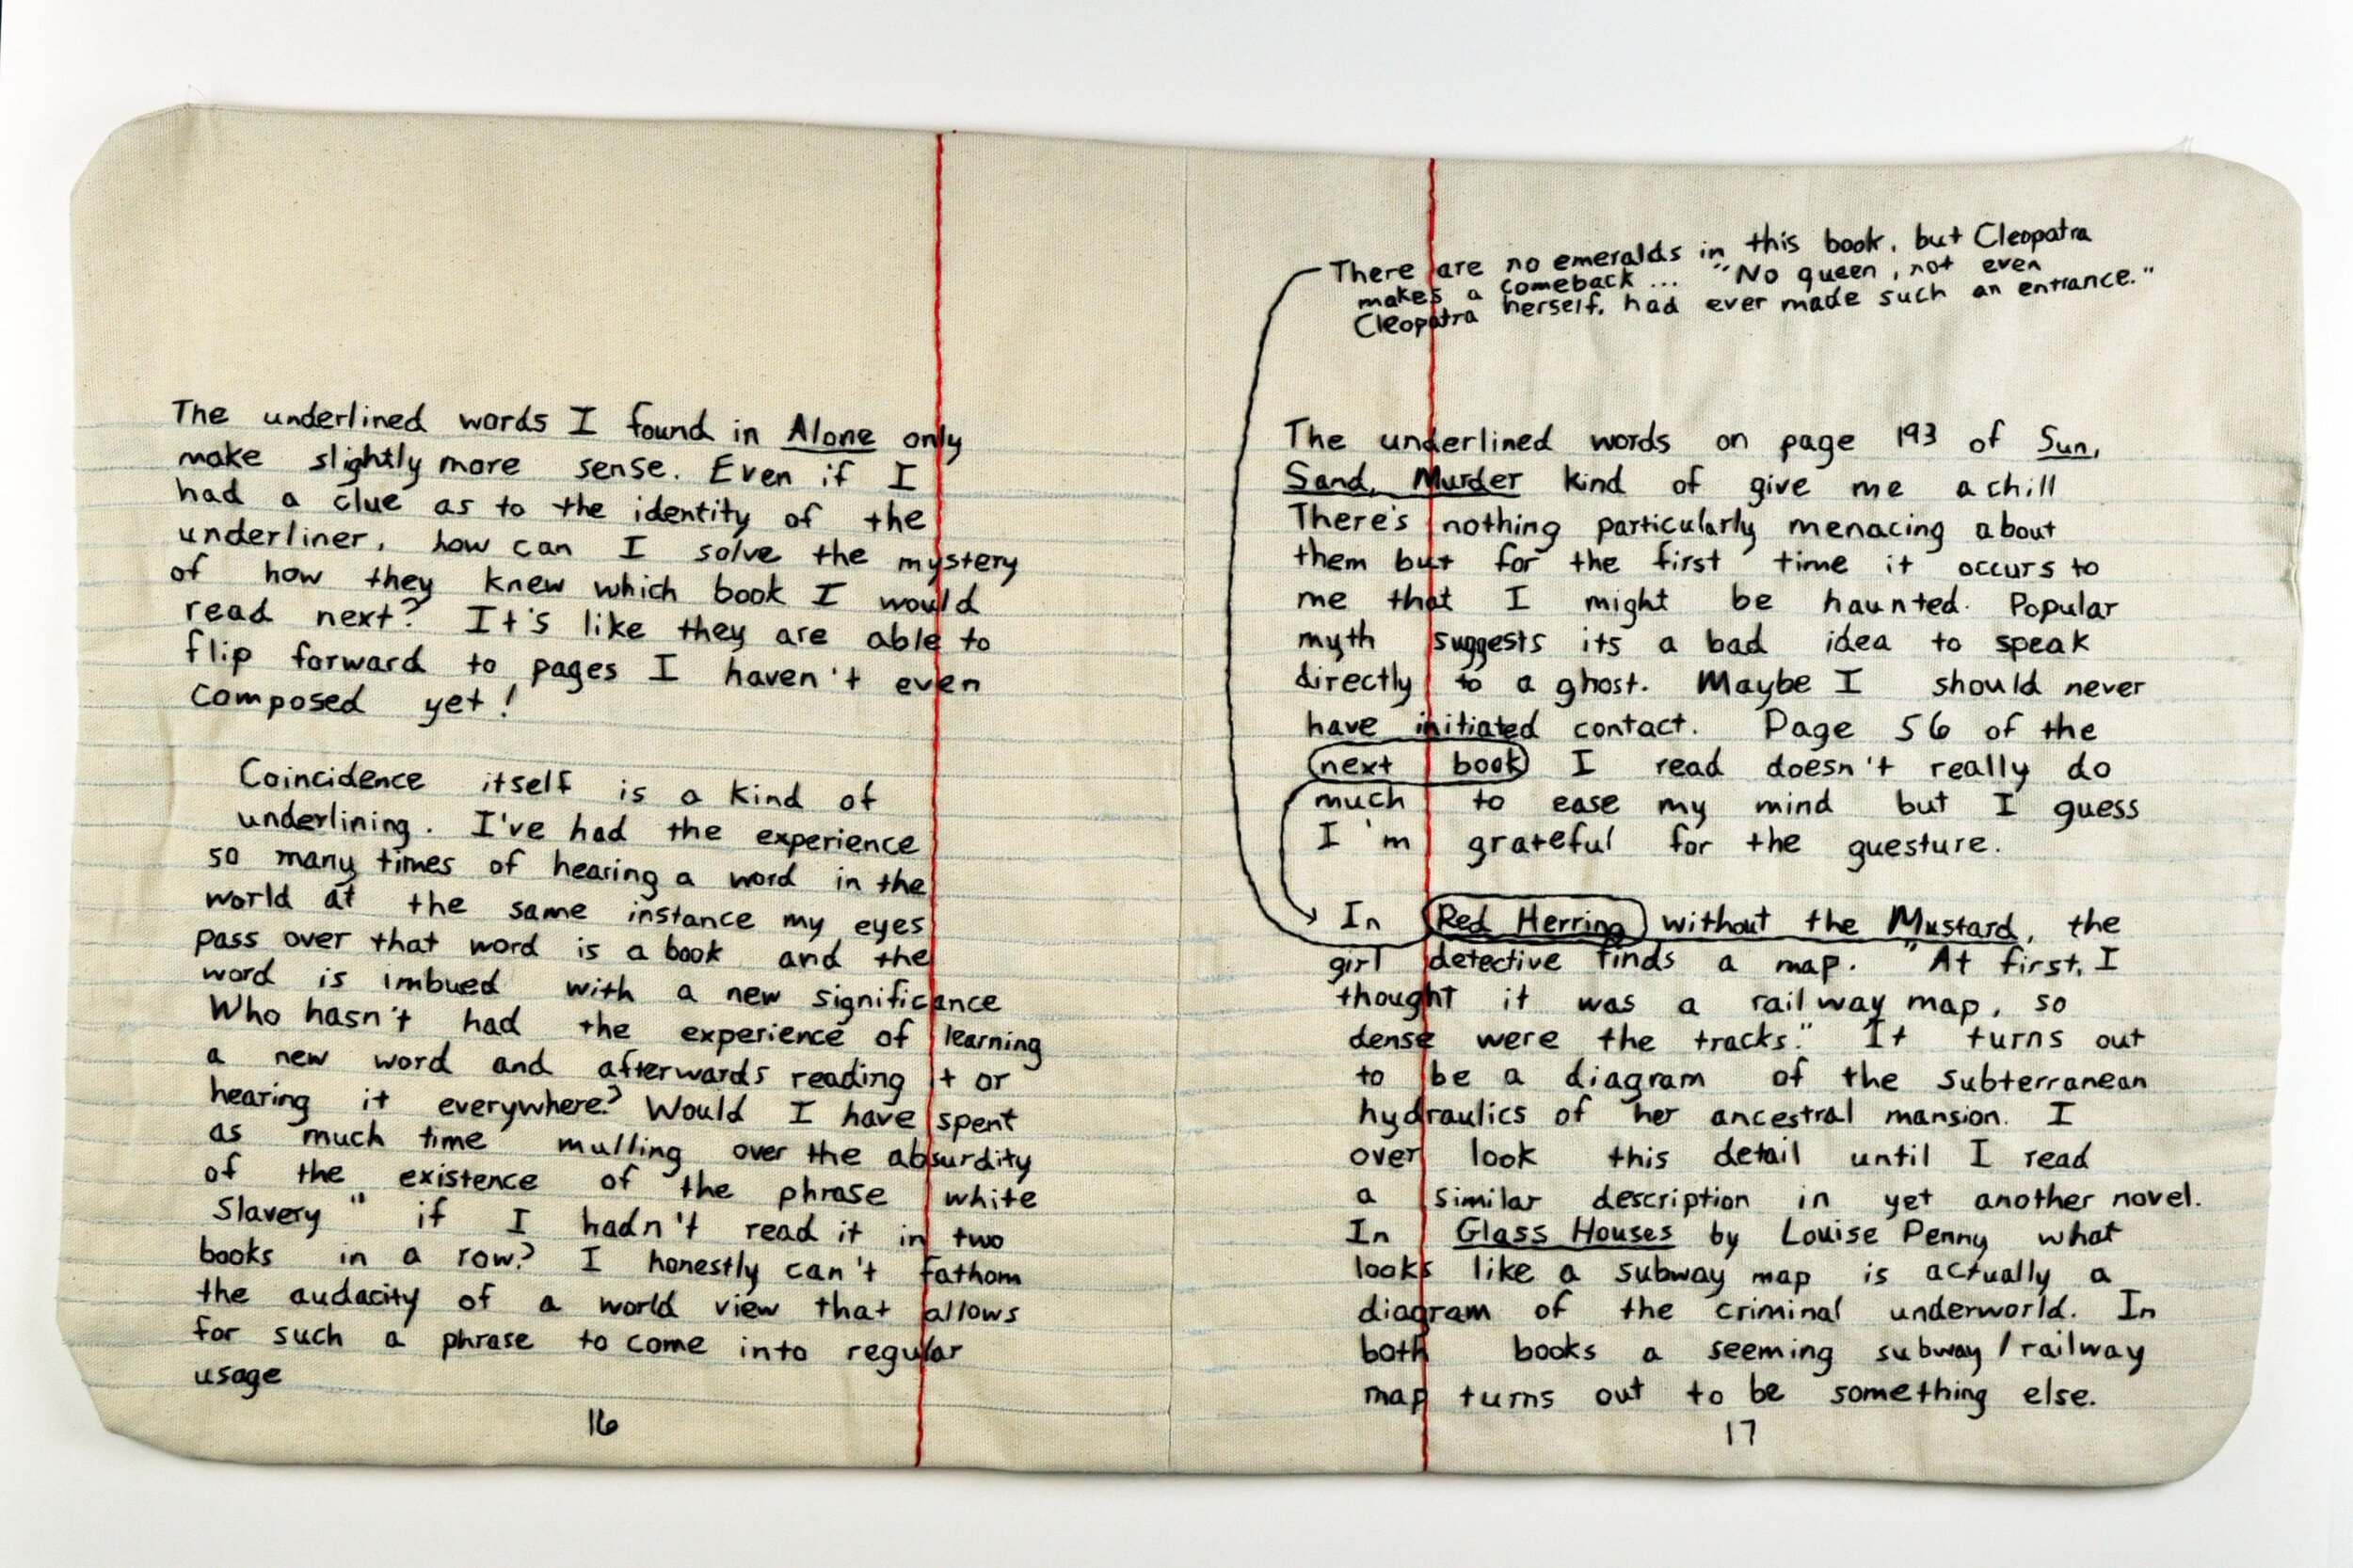 The underlined words I found in Alone only
make slightly more sense. Even if I
had a clue as to the identity of the
underliner, how can I solve the mystery
of how they knew which book I would
read next? It's like they are able to
flip forward to pages I haven't even
composed yet!
Coincidence itself is a kind of
underlining. I've had the experience
so many times of hearing a word in the
world at the same instance my eyes
pass over that word is a book and the
word is imbued with a new significance
Who hasn't had the experience of learning
a new word and afterwards reading it or
hearing it everywhere? Would I have spent
as much time mulling over the absurdity
of the existence of "the phrase white
Slavery" if I hadn't read it in two
books in a row? I honestly can't fathom
the audacity of a world view that allows
for such a phrase to come into regular
usage
16
There are no emeralds in this book, but Cleopatra
makes a comeback... "No queen, not even
Cleopatra herself, had ever made such an entrance."
The underlined words on page 193 of Sun,
Sand, Murder kind of give me a chill
There's nothing particularly menacing about
them but for the first time it occurs to
me that I might be haunted. Popular
myth suggests its a bad idea to speak
directly to a ghost. Maybe I should never
have initiated contact. Page 56 of the
next book I read doesn't really do
much to ease my mind but I guess
I'm grateful for the guesture.
In Red Herring without the Mustard, the
girl detective finds a map. "At first, I
thought it was a railway map, so
dense were the tracks." It turns out
to be a diagram of the subterranean
hydraulics of her ancestral mansion. I
over look this detail until I read
a similar description in yet another novel.
In Glass Houses by Louise Penny what
looks like a subway map is actually a
diagram of the criminal underworld. In
both books a seeming subway/railway
map turns out to be something else.
17